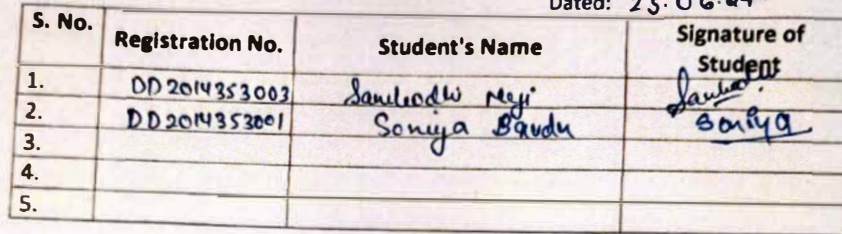 Dated: 25.06.24
S. No. Registration No. Student's Name Signature of Student
1. DD2014353003
2. DD2014353001 Soniya Soniya
3.
4.
5.